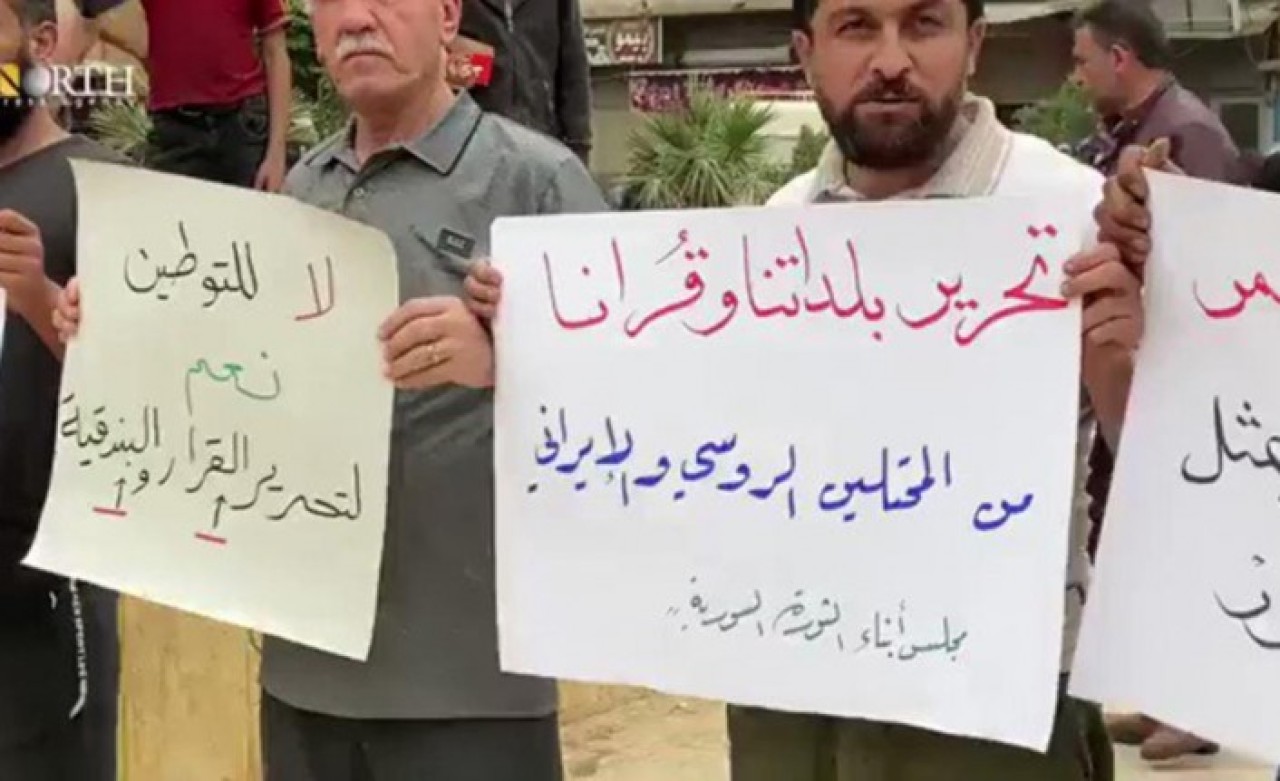 NORTH
PRESS AGENCY
بيمو
لا للتوطين
نعم
لتحرير القرار و البندقية
تحرير بلداتنا وقُرانا
من المحتلين الروسي والإيراني
مجلس أبناء الثورة السورية
يمثل